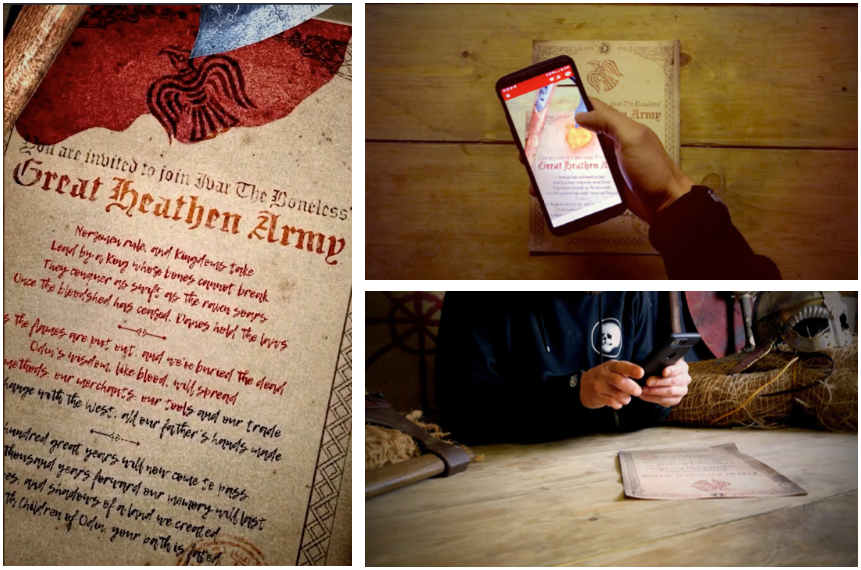 You are invited to join Ivar The Boneless'
Great Heathen Army
Norsemen rule, and Kingdoms take
Lead by a King whose bones cannot break
They conquer as swift as the raven soars
Once the bloodshed has ceased, Danes hold the laws
s the flames are put out, and we've buried the dead
Odin's wisdom, like blood, will spread
methods, our merchants, our tools and our trade
hange with the West, all our father's hands made
hundred great years will now come to pass
thousand years forward our memory will last
es, and shadows of a land we created
th Children of Odin, your oath is fated
Great Heathen A
Army
Great Heathen Army